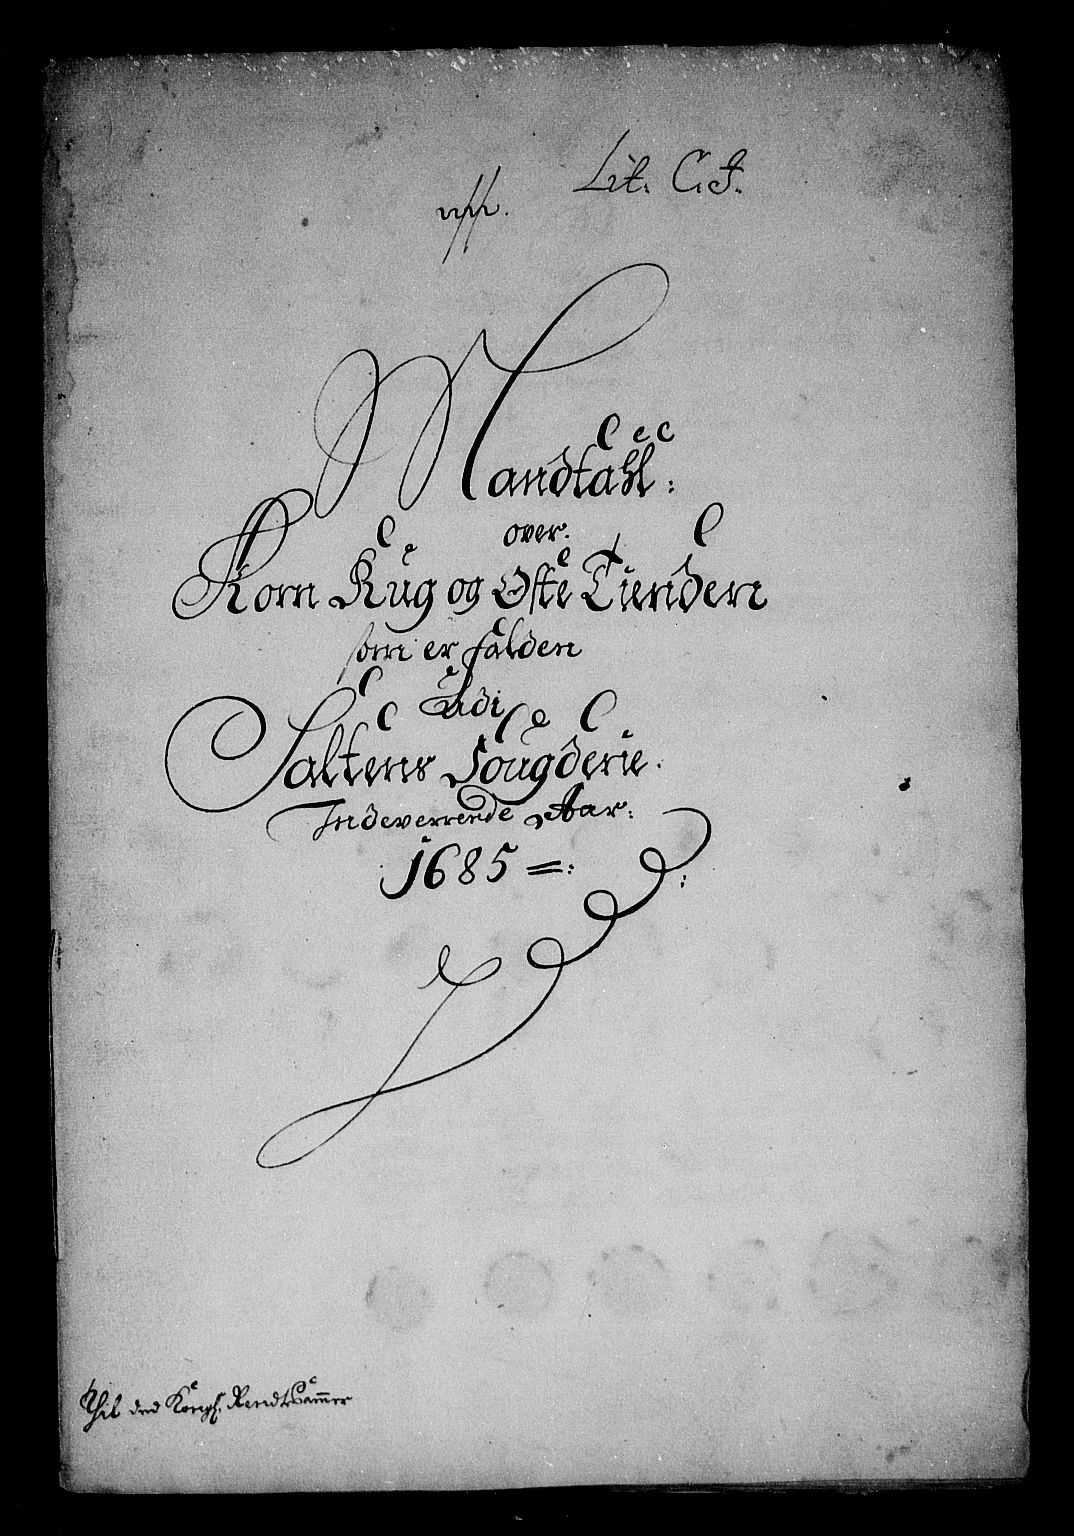 Lit. C. I.
Mandtahl:
over.
Korn Kug og Oste Tienden
som er falden
Udi
Saltens Fougderie.
Indeverrende Aar:
1685
Thil ded Kongl. Rendtkammer